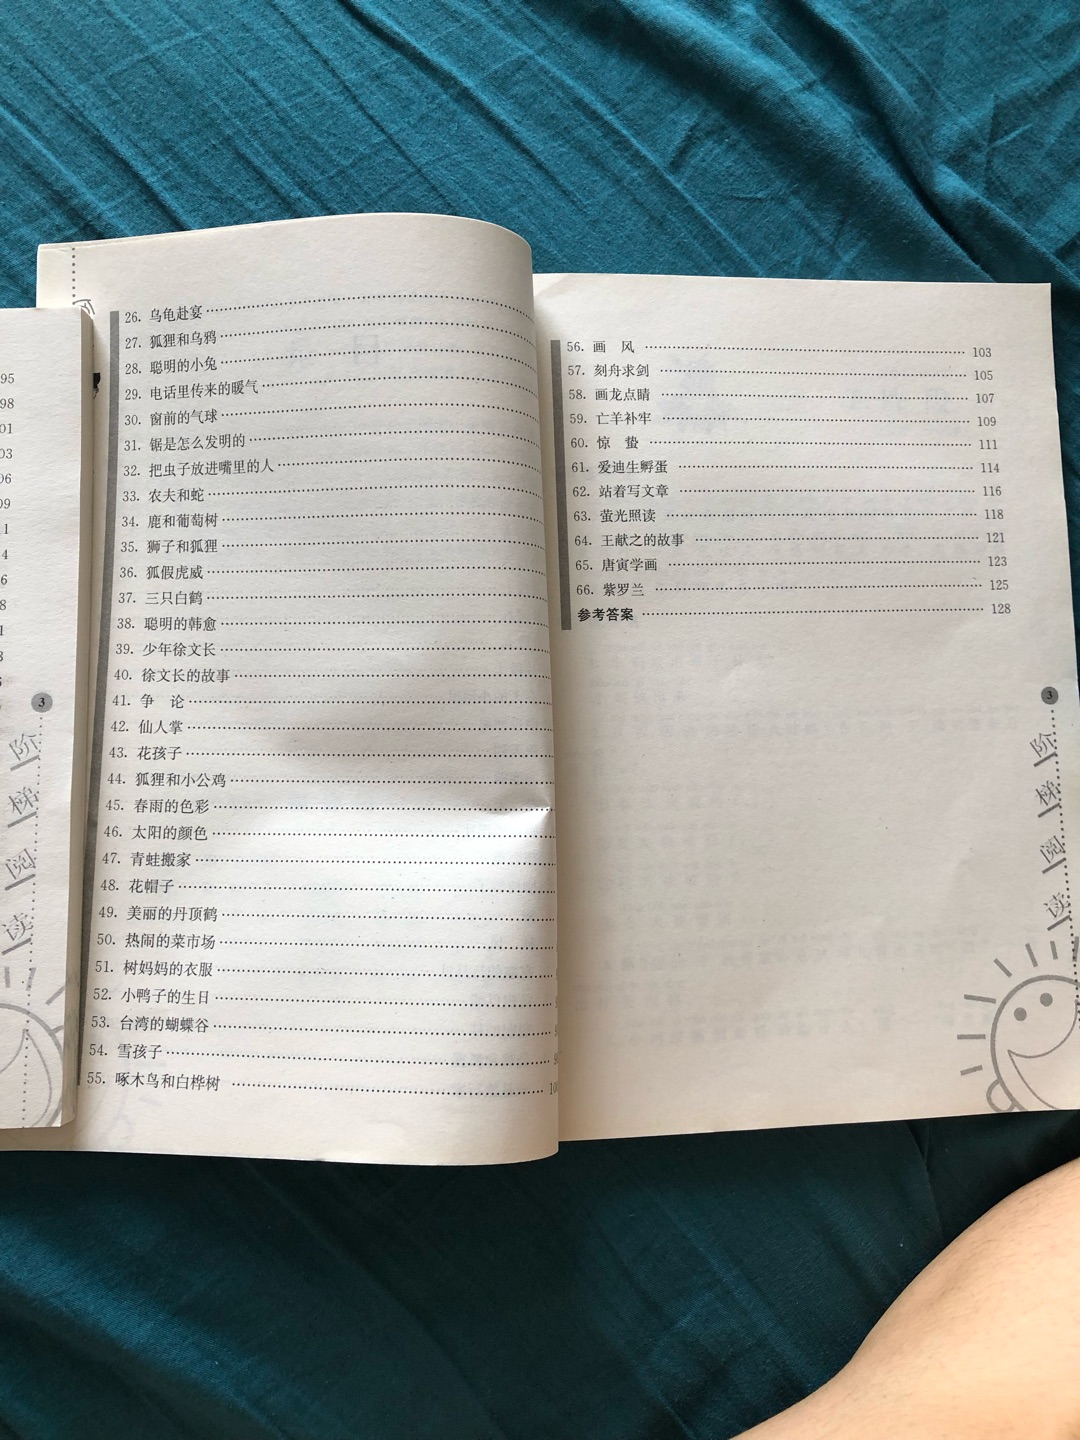 95
98
01
03
06
09
3
阶
梯
阅
读
26. 乌龟赴宴
27. 狐狸和乌鸦
28. 聪明的小兔
29. 电话里传来的暖气
30. 窗前的气球
31. 锯是怎么发明的
32. 把虫子放进嘴里的人
33. 农夫和蛇
34. 鹿和葡萄树
35. 狮子和狐狸
36. 狐假虎威
37. 三只白鹤
38. 聪明的韩愈
39. 少年徐文长
40. 徐文长的故事
41. 争 论
42. 仙人掌
43. 花孩子
44. 狐狸和小公鸡
45. 春雨的色彩
46. 太阳的颜色
47. 青蛙搬家
48. 花帽子
49. 美丽的丹顶鹤
50. 热闹的菜市场
51. 树妈妈的衣服
52. 小鸭子的生日
53. 台湾的蝴蝶谷
54. 雪孩子
55. 啄木鸟和白桦树
56. 画 风 103
57. 刻舟求剑 105
58. 画龙点睛 107
59. 亡羊补牢 109
60. 惊 蛰 111
61. 爱迪生孵蛋 114
62. 站着写文章 116
63. 萤光照读 118
64. 王献之的故事 121
65. 唐寅学画 123
66. 紫罗兰 125
参考答案 128
3
阶
梯
阅
读